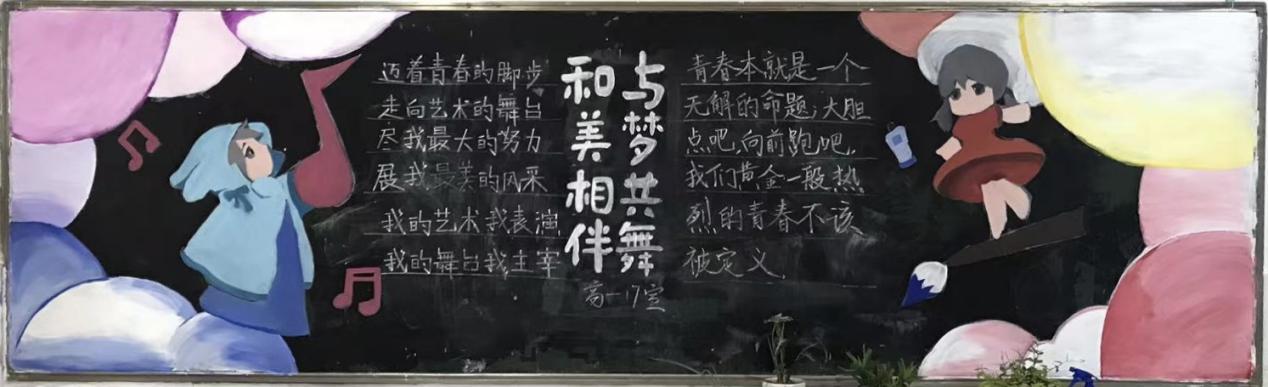 迈着青春的脚步
走向艺术的舞台
尽我最大的努力
展我最美的风采
我的艺术我表演
我的舞台我主宰
与梦共舞
和美相伴
高一17室
青春本就是一个
无解的命题,大胆
点吧,向前跑吧,
我们黄金一般热
烈的青春不该
被定义.